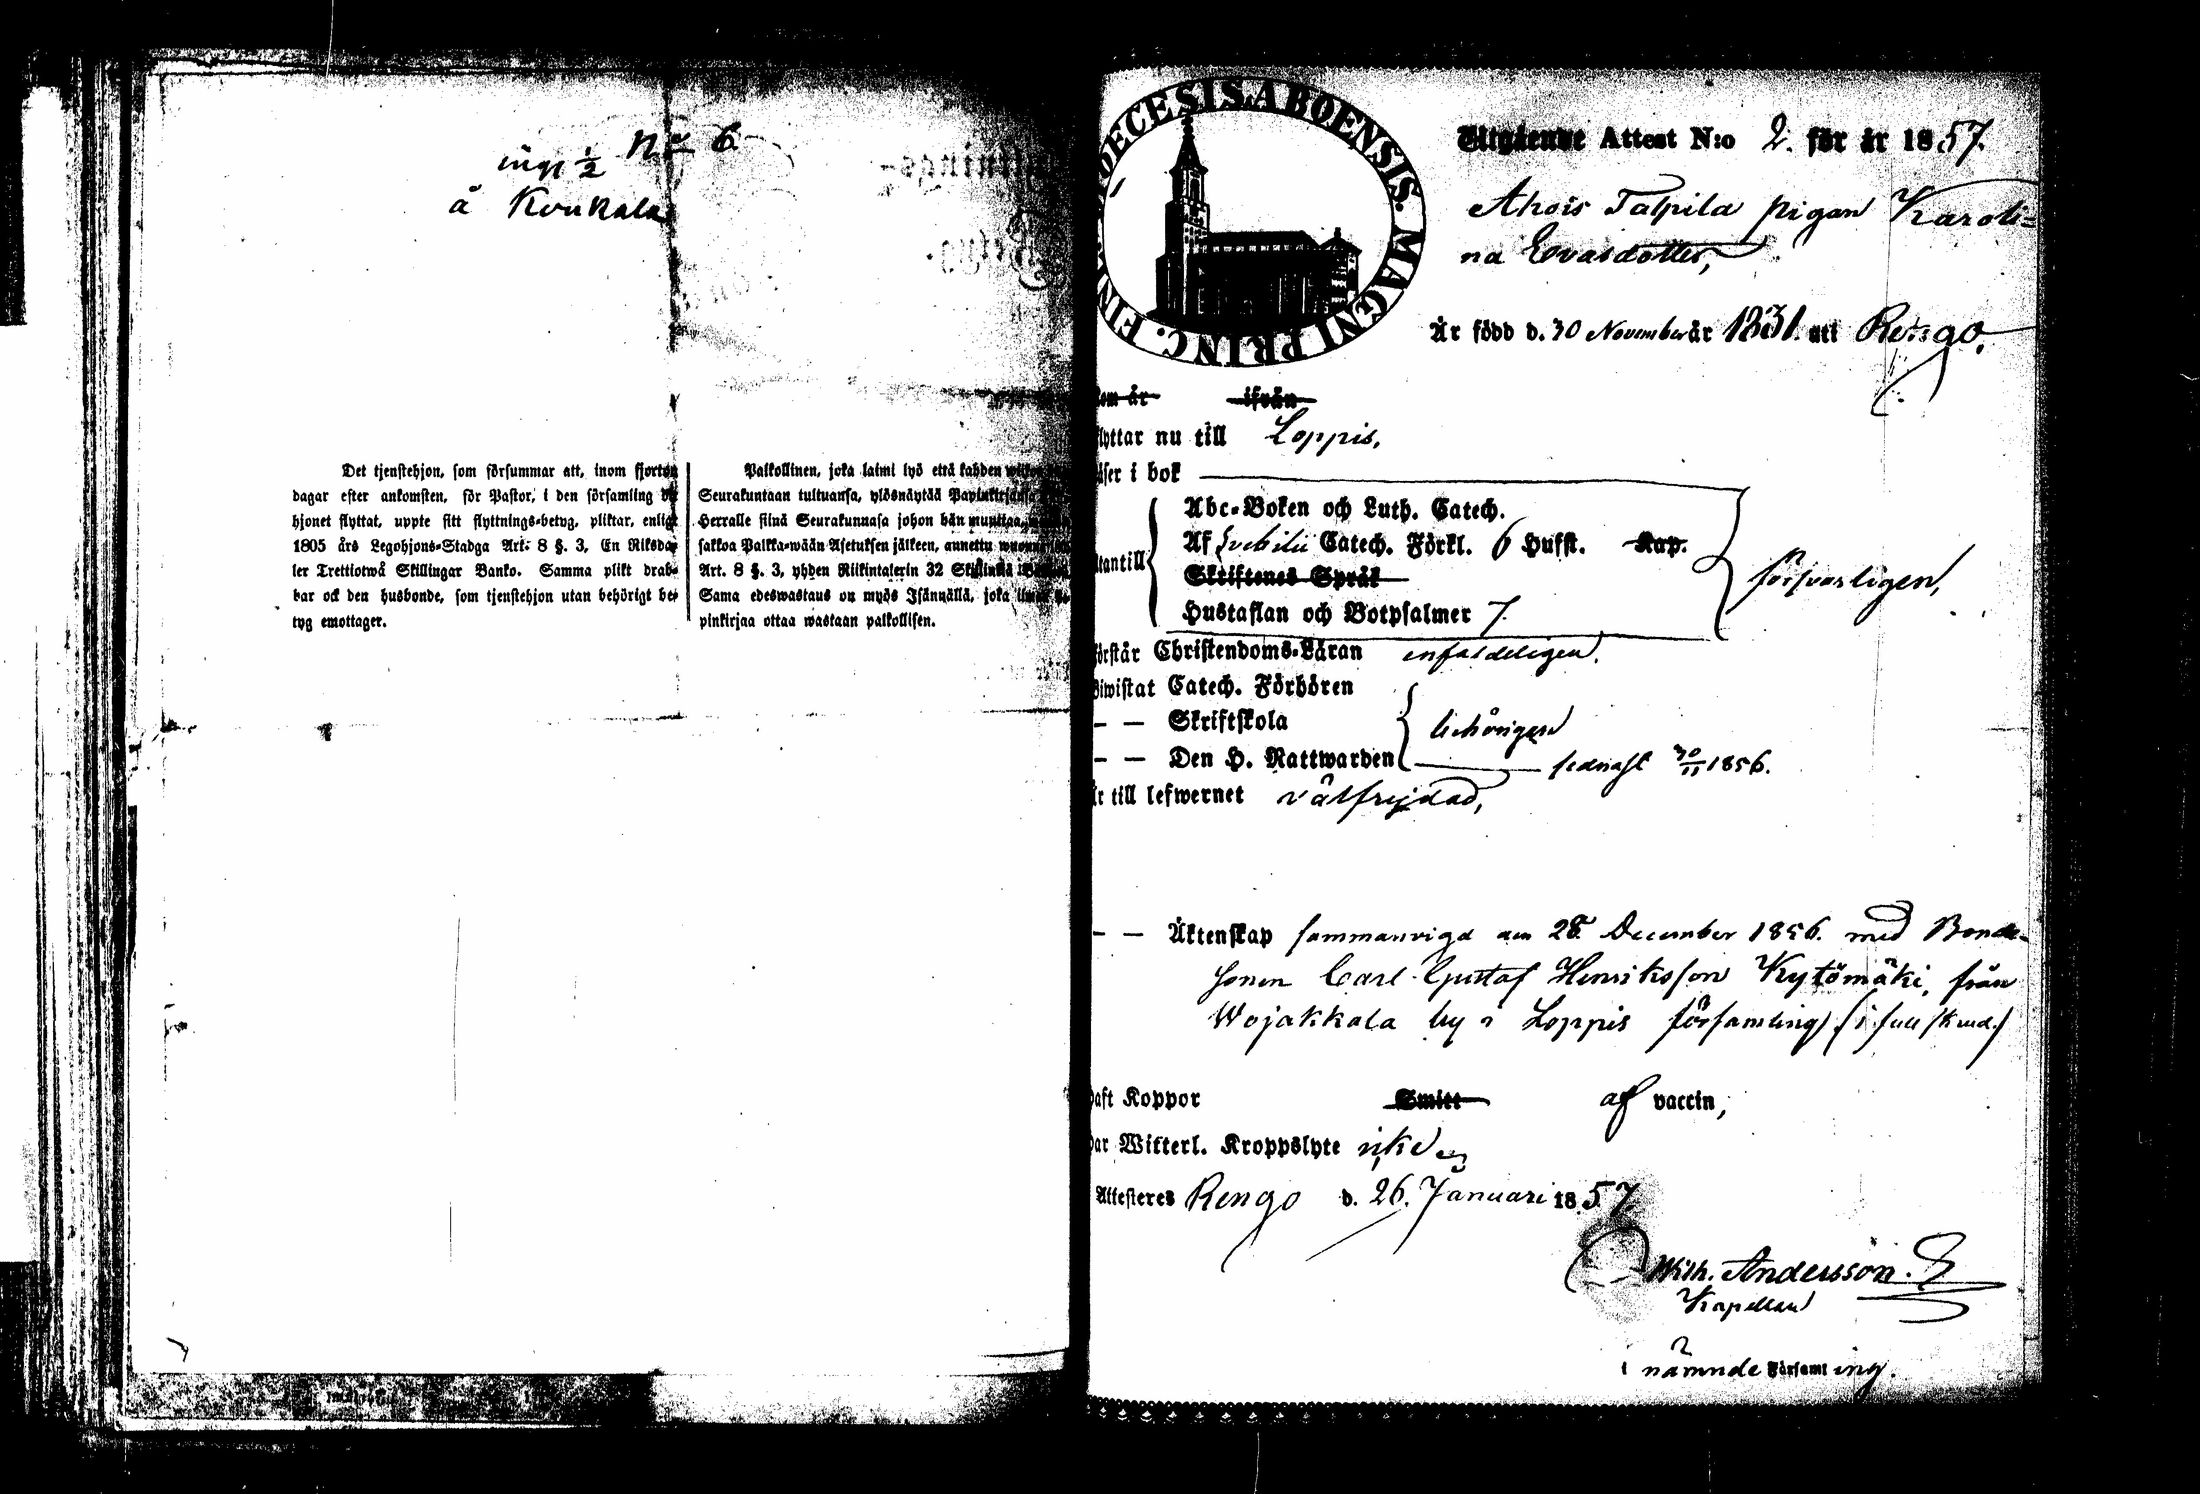 N:o 6.
ing 1/2
å Koukala
Det tjenstehjon, som försummar att, inom fjorton
dagar efter ankomsten, för Pastor, i den församling
hjonet flyttat, uppte sitt flyttnings-betyg, pliktar, enligt
1805 års Legohjons-Stadga Art. 8 §. 3, En Riksda-
ler Trettiotwå Skillingar Banko. Samma plikt drab-
bar ock den husbonde, som tjenstehjon utan behörigt be-
tyg emottager.
Palkollinen, joka laimi lyö että kahden
Seurakuntaan tultuansa, ylösnäytää Papinkirjansa
Herralle siinä Seurakunnasa johon hän muuttaa,
sakkoa Palkka-wään Asetuksen jälkeen, annettu
Art. 8 §. 3, yhden Riikintalerin 32 Skillinkiä
Sama edeswastaus on myös Isännällä, joka
pinkirjaa ottaa wastaan palkollisen.
DIOECESIS ABOENSIS. MAGNI PRINC. FINL
Utgående Attest N:o 2. för år 1857.
Ahois Talpila pigan Karoli=
na Evasdotter,
Är född d. 30 November år 1831. uti Rengo.
som är ifrån
flyttar nu till Loppis,
läser i bok
Abc-Boken och Luth. Catech.
Af Svebilii Catech. Förkl. 6 Hufst. Kap.
utantill
Skriftenes Språk
Hustaflan och Botpsalmer 7.
försvarligen,
förstår Christendoms-Läran enfaldeligen.
Biwistat Catech. Förhören
– – Skriftskola
behörigen
– – Den H. Nattwarden sednast 30/11 1856.
Är till lefwernet välfrejdad,
– – Äktenskap sammanvigd den 28 December 1856. med Bonde-
sonen Carl Gustaf Henriksson Kytömäki, från
Wojakkala by i Loppis församling
haft Koppor Smitt af vaccin,
har Witterl. Kroppslyte icke
Attesteres Rengo d. 26. Januari 1857
Wilh. Andersson.
Kapellan
i nämnde Församling.